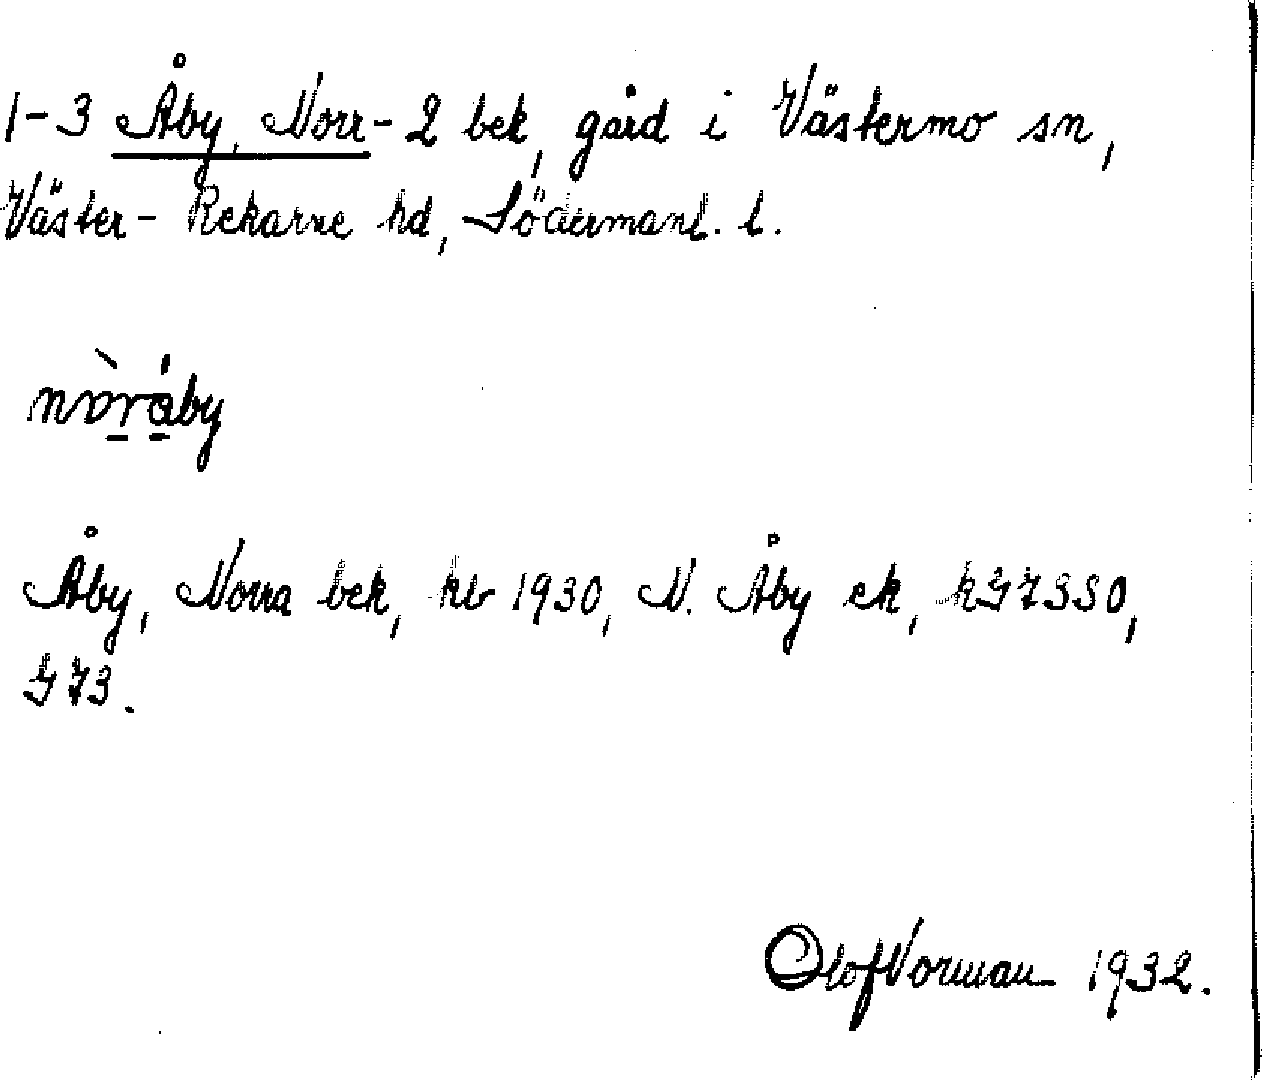 1-3 Åby, Norr- 2 bek, gård i Västermo sn,
Väster-Rekarne hd, Södermanl. l.
nòráby
Åby, Norra bek, kb 1930, N. Åby ek,
J 73.
Olof Norman 1932.